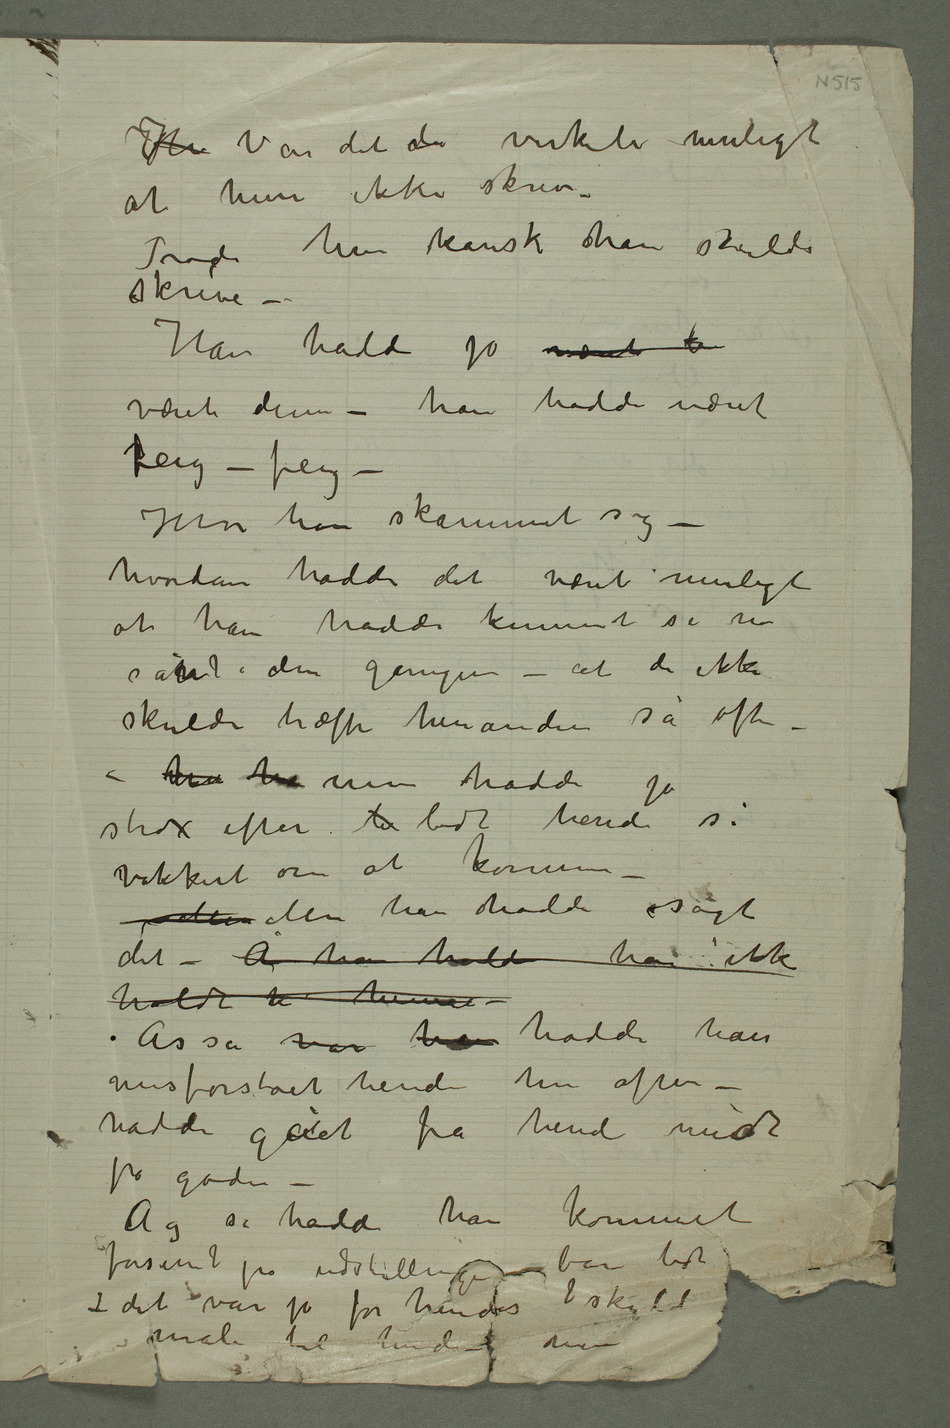 N 515
Var det da virkeli muligt
at hun ikke skrev –
Trode hun kansk han skulde
skrive –
Han hadde jo været
været dum – han hadde været
feig – feig –
Hvor han skammet sig –
hvordan hadde det været muligt
at han hadde kunnet si no
sånt den gangen – at de ikke
skulde træffe hinanden så ofte –
– men hadde jo
strax efter bedt hende så
vakkert om at komme –
Men han hadde sagt
det – Å han hadde han ikke
holdt henne –
Asså var han hadde han
misforståt hende hin aften –
hadde gået fra hende midt
på gaden –
Ag så hadde han kommet
forsent på udstillingen – bare
det var jo for hendes skyld
male til hende